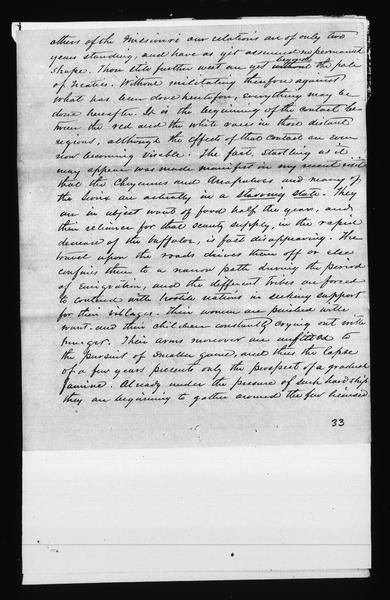 others of the Missouri our relations are of only two
years standing, and have as yet assumed no permanent
shape. Those still further west are yet without beyond the pale
of treaties. Without militating therefore against
what has been done heretofore, everything may be
done hereafter. It is the beginning of the contact be-
tween the red and the white races in those distant
regions, although the effects of that contact are even
now becoming visible. The fact, startling as it
may appear was made manifest in my recent visit
that the Cheyennes and Arrapahoes and many of
the Sioux are actually in a starving state. They
are in abject want of food half the year, and
their reliance for that scanty supply, in the rapid
decrease of the buffaloe, is fast disappearing. The
travel upon the roads drives them off or else
confines them to a narrow path during the period
of Emigration, and the different tribes are forced
to contend with hostile nations in seeking support
for their villages. Their women are pinched with
want and their children constantly crying out with
hunger. Their arms moreover are unfitted to
the pursuit of smaller game, and thus the lapse
of a few years presents only the prospect of a gradual
famine. Already under the pressure of such hardship
they are beginning to gather around the few licensed
33